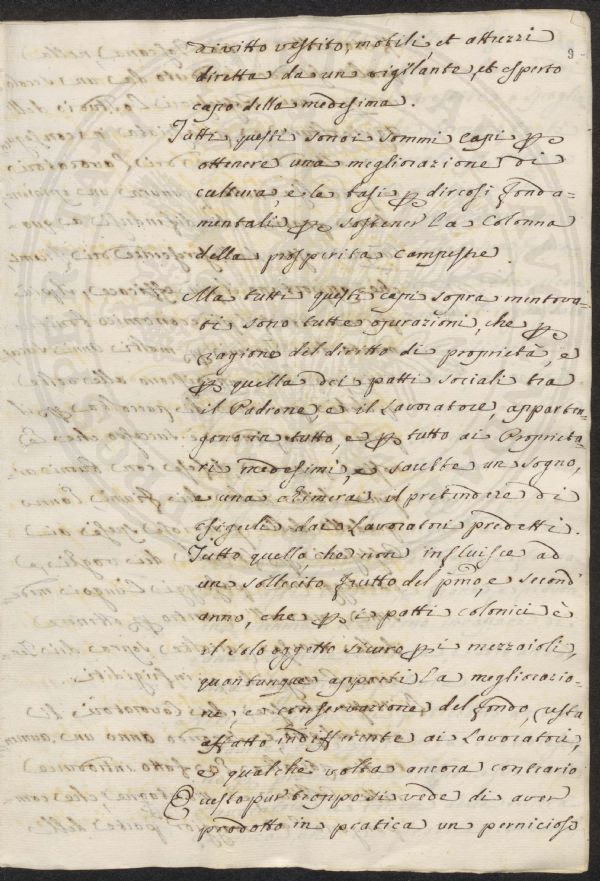 di vitto vestito, mobili, et attrezzi
9
diretta da un vigilante, et esperto
capo della medesima.
Tutti questi sono i sommi capi p
ottenere una megliorazione di
cultura, e le basi p dir così fonda=
mentali p sostener la Colonna
della prosperità campestre.
Ma tutti questi capi sopra mentova=
ti sono tutte operazioni, che p
ragione del diritto di proprietà, e
p quella dei patti sociali tra
il Padrone, e il Lavoratore, apparten=
gono in tutto, e p tutto ai Proprieta=
ri medesimi, e sarebbe un sogno,
e una chimera il pretendere di
esigerli dai Lavoratori predetti.
Tutto quello che non influisce ad
un sollecito frutto del pmo, e second
anno, che p i patti colonici è
il solo oggetto sicuro p i mezzaioli,
quantunque apporti la megliorazio=
ne, e conservazione del fondo, resta
affatto indifferente ai Lavoratori,
e qualche volta ancora contrario
Questo pur troppo si vede di aver
prodotto in pratica un pernicioso